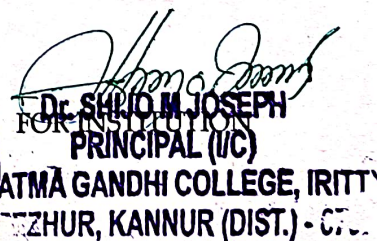 Dr. SHIJO M JOSEPH
FOR INSTITUTION
PRINCIPAL (I/C)
ATMA GANDHI COLLEGE, IRITTY
ZHUR, KANNUR (DIST.) -